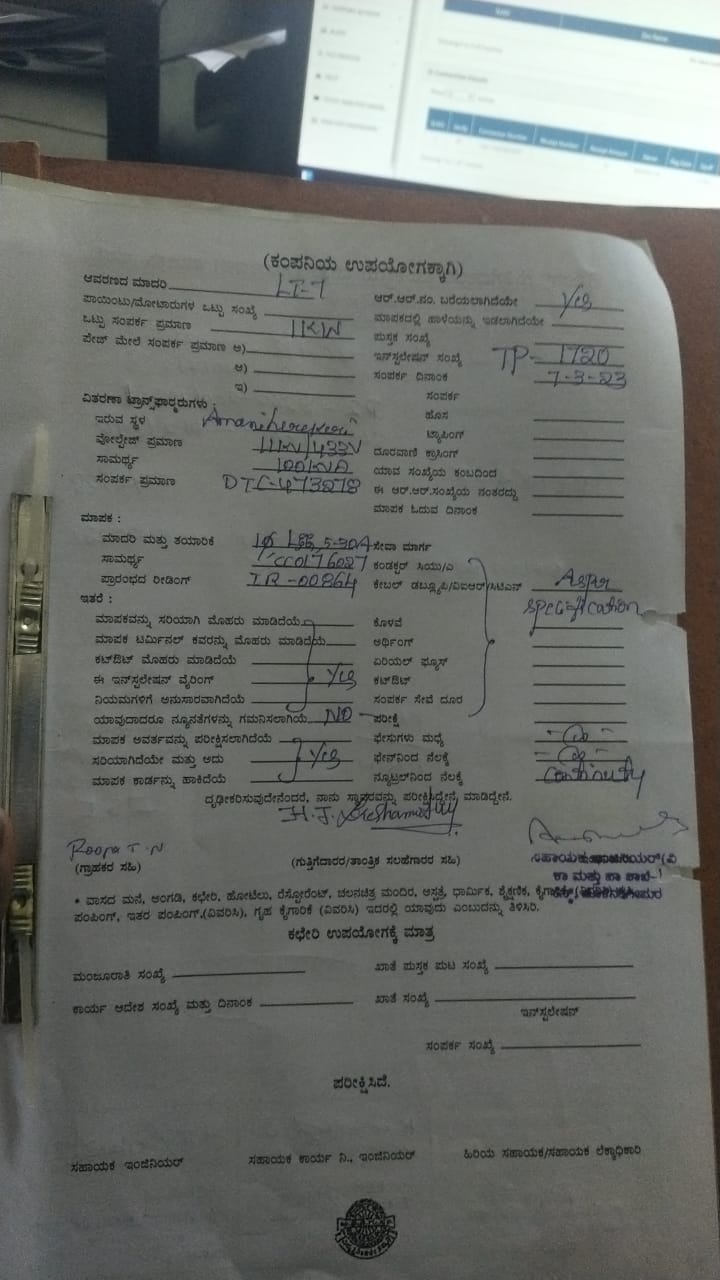 (ಕಂಪನಿಯ ಉಪಯೋಗಕ್ಕಾಗಿ)
ಆವರಣದ ಮಾದರಿ LT-1
ಆರ್.ಆರ್.ನಂ. ಬರೆಯಲಾಗಿದೆಯೇ Yes
ಪಾಯಿಂಟು/ಮೋಟಾರುಗಳ ಒಟ್ಟು ಸಂಖ್ಯೆ
ಮಾಪಕದಲ್ಲಿ ಹಾಳೆಯನ್ನು ಇಡಲಾಗಿದೆಯೇ
ಒಟ್ಟು ಸಂಪರ್ಕ ಪ್ರಮಾಣ 1KW
ಪುಸ್ತಕ ಸಂಖ್ಯೆ
ಪೇಜ್ ಮೇಲೆ ಸಂಪರ್ಕ ಪ್ರಮಾಣ ಅ)
ಇನ್‌ಸ್ಟಲೇಷನ್ ಸಂಖ್ಯೆ TP-1720
ಆ)
ಸಂಪರ್ಕ ದಿನಾಂಕ 7-3-23
ಇ)
ಸಂಪರ್ಕ
ವಿತರಣಾ ಟ್ರಾನ್ಸ್‌ಫಾರ್ಮರುಗಳು :
ಹೊಸ
ಇರುವ ಸ್ಥಳ
ಟ್ಯಾಪಿಂಗ್
ವೋಲ್ಟೇಜ್ ಪ್ರಮಾಣ 11KV/433V
ದೂರವಾಣಿ ಕ್ರಾಸಿಂಗ್
ಸಾಮರ್ಥ್ಯ 100KVA
ಯಾವ ಸಂಖ್ಯೆಯ ಕಂಬದಿಂದ
ಸಂಪರ್ಕ ಪ್ರಮಾಣ DTC-473278
ಈ ಆರ್.ಆರ್.ಸಂಖ್ಯೆಯ ನಂತರದ್ದು
ಮಾಪಕ ಓದುವ ದಿನಾಂಕ
ಮಾಪಕ :
ಮಾದರಿ ಮತ್ತು ತಯಾರಿಕೆ 1φ 5-30A
ಸೇವಾ ಮಾರ್ಗ
ಸಾಮರ್ಥ್ಯ
ಕಂಡಕ್ಟರ್ ಸಿಯು/ಎ
ಪ್ರಾರಂಭದ ರೀಡಿಂಗ್ IR-00864
ಕೇಬಲ್ ಡಬ್ಲ್ಯೂಪಿ/ವಿಐಆರ್/ಸಿಟಿಎಸ್ Asper
specification
ಇತರೆ :
ಮಾಪಕವನ್ನು ಸರಿಯಾಗಿ ಮೊಹರು ಮಾಡಿದೆಯೆ
ಕೊಳವೆ
ಮಾಪಕ ಟರ್ಮಿನಲ್ ಕವರನ್ನು ಮೊಹರು ಮಾಡಿದೆಯೆ
ಅರ್ಥಿಂಗ್
ಕಟ್‌ಔಟ್ ಮೊಹರು ಮಾಡಿದೆಯೆ
ಏರಿಯಲ್ ಫ್ಯೂಸ್
ಈ ಇನ್‌ಸ್ಟಲೇಷನ್ ವೈರಿಂಗ್ Yes
ಕಟ್‌ಔಟ್
ನಿಯಮಗಳಿಗೆ ಅನುಸಾರವಾಗಿದೆಯೆ
ಸಂಪರ್ಕ ಸೇವೆ ದೂರ
ಯಾವುದಾದರೂ ನ್ಯೂನತೆಗಳನ್ನು ಗಮನಿಸಲಾಗಿಯೆ NO
ಪರೀಕ್ಷೆ
ಮಾಪಕ ಅವರ್ತವನ್ನು ಪರೀಕ್ಷಿಸಲಾಗಿದೆಯೆ
ಫೇಸುಗಳು ಮಧ್ಯೆ
ಸರಿಯಾಗಿದೆಯೇ ಮತ್ತು ಅದು Yes
ಫೇಸ್‌ನಿಂದ ನೆಲಕ್ಕೆ
ಮಾಪಕ ಕಾರ್ಡನ್ನು ಹಾಕಿದೆಯೆ
ನ್ಯೂಟ್ರಲ್‌ನಿಂದ ನೆಲಕ್ಕೆ Continuity
ದೃಢೀಕರಿಸುವುದೇನೆಂದರೆ, ನಾನು ಸ್ಥಾವರವನ್ನು ಪರೀಕ್ಷಿಸಿದ್ದೇನೆ, ಮಾಡಿದ್ದೇನೆ.
Roopa T.N
(ಗ್ರಾಹಕರ ಸಹಿ)
(ಗುತ್ತಿಗೆದಾರರ/ತಾಂತ್ರಿಕ ಸಲಹೆಗಾರರ ಸಹಿ)
• ವಾಸದ ಮನೆ, ಅಂಗಡಿ, ಕಛೇರಿ, ಹೋಟೆಲು, ರೆಸ್ಟೋರೆಂಟ್, ಚಲನಚಿತ್ರ ಮಂದಿರ, ಆಸ್ಪತ್ರೆ, ಧಾರ್ಮಿಕ, ಶೈಕ್ಷಣಿಕ,
ಪಂಪಿಂಗ್, ಇತರ ಪಂಪಿಂಗ್,(ವಿವರಿಸಿ), ಗೃಹ ಕೈಗಾರಿಕೆ (ವಿವರಿಸಿ) ಇದರಲ್ಲಿ ಯಾವುದು ಎಂಬುದನ್ನು ತಿಳಿಸಿರಿ.
ಕಛೇರಿ ಉಪಯೋಗಕ್ಕೆ ಮಾತ್ರ
ಮಂಜೂರಾತಿ ಸಂಖ್ಯೆ
ಖಾತೆ ಪುಸ್ತಕ ಪುಟ ಸಂಖ್ಯೆ
ಕಾರ್ಯ ಆದೇಶ ಸಂಖ್ಯೆ ಮತ್ತು ದಿನಾಂಕ
ಖಾತೆ ಸಂಖ್ಯೆ
ಇನ್‌ಸ್ಟಲೇಷನ್
ಸಂಪರ್ಕ ಸಂಖ್ಯೆ
ಪರೀಕ್ಷಿಸಿದೆ.
ಸಹಾಯಕ ಇಂಜಿನಿಯರ್
ಸಹಾಯಕ ಕಾರ್ಯ ನಿ., ಇಂಜಿನಿಯರ್
ಹಿರಿಯ ಸಹಾಯಕ/ಸಹಾಯಕ ಲೆಕ್ಕಾಧಿಕಾರಿ